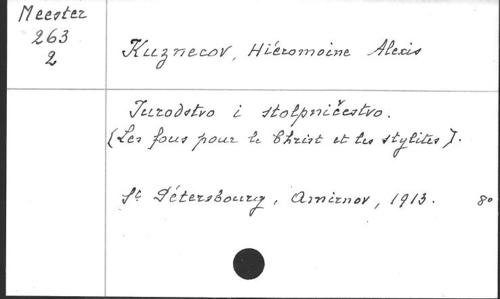 Meester
263
2
Kuznecov, Hiéromoine Alexis
Jurodstvo i stolpničestvo.
(Les fous pour le Christ et les stylites).
St Pétersbourg, Amirnov, 1913. 8°